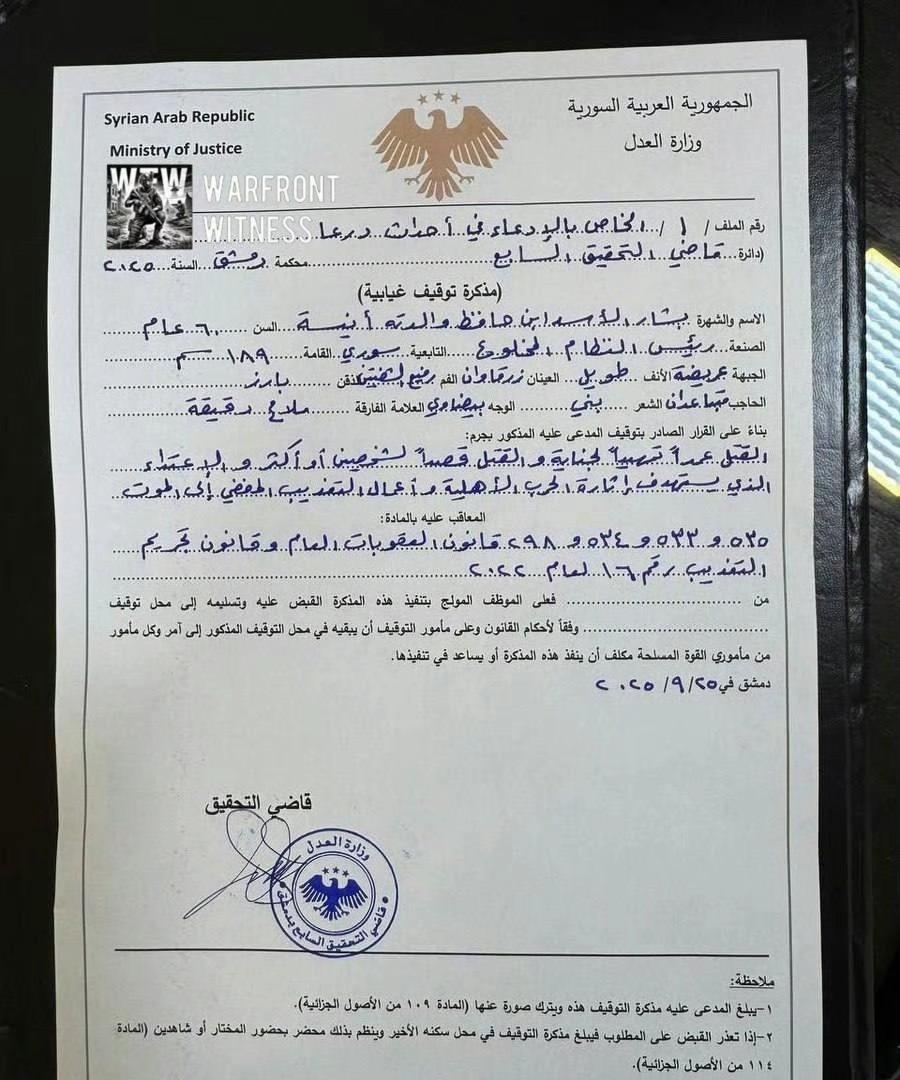 الجمهورية العربية السورية
Syrian Arab Republic
وزارة العدل
Ministry of Justice
WFW
WARFRONT
WITNESS
رقم الملف / ١ / الخاص بالإدعاء في أحداث درعا
(دائرة... قاضي التحقيق السابع محكمة دمشق السنة ٢٠٢٥
(مذكرة توقيف غيابية)
الاسم والشهرة بشار الأسد ابن حافظ والدته أنيسة السن ٦٠ عام
الصنعة رئيس النظام المخلوع التابعية سوري القامة ١٨٩ سم
الجبهة عريضة الأنف طويل العينان زرقاوان الفم رفيع الشفتين الذقن بارز
الحاجب الشعر بني الوجه بيضاوي العلامة الفارقة ملامح دقيقة
بناءً على القرار الصادر بتوقيف المدعى عليه المذكور بجرم:
القتل عمداً تمهيداً لجناية و القتل قصداً لشخصين أو أكثر و الإعتداء
الذي يستهدف إثارة الحرب الأهلية و أعمال التعذيب المفضي إلى الموت
المعاقب عليه بالمادة:
٥٣٥ و ٥٣٣ و ٥٣٤ و ٢٩٨ قانون العقوبات العام و قانون تجريم
التعذيب رقم ١٦ لعام ٢٠٢٢
من فعلى الموظف المولج بتنفيذ هذه المذكرة القبض عليه وتسليمه إلى محل توقيف
وفقاً لأحكام القانون وعلى مأمور التوقيف أن يبقيه في محل التوقيف المذكور إلى آمر وكل مأمور
من مأموري القوة المسلحة مكلف أن ينفذ هذه المذكرة أو يساعد في تنفيذها.
دمشق في ٢٠٢٥/٩/٢٥
قاضي التحقيق
وزارة العدل
قاضي التحقيق السابع بدمشق
ملاحظة:
١-يبلغ المدعى عليه مذكرة التوقيف هذه ويترك صورة عنها (المادة ١٠٩ من الأصول الجزائية).
٢-إذا تعذر القبض على المطلوب فيبلغ مذكرة التوقيف في محل سكنه الأخير وينظم بذلك محضر بحضور المختار أو شاهدين (المادة
١١٤ من الأصول الجزائية).